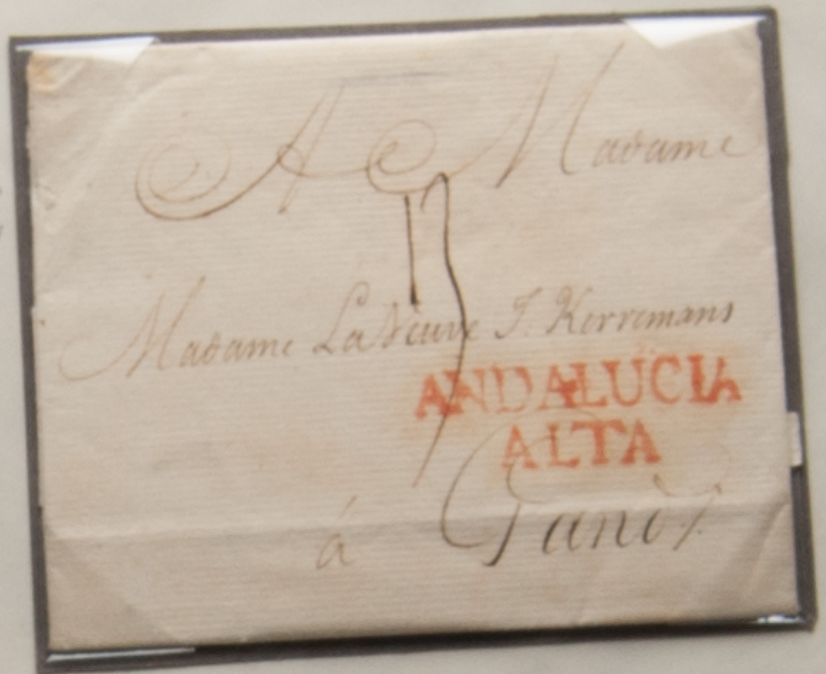 A Madame
17
Madame La Veuve J. Kerremans
ANDALUCIA
ALTA
á Gand